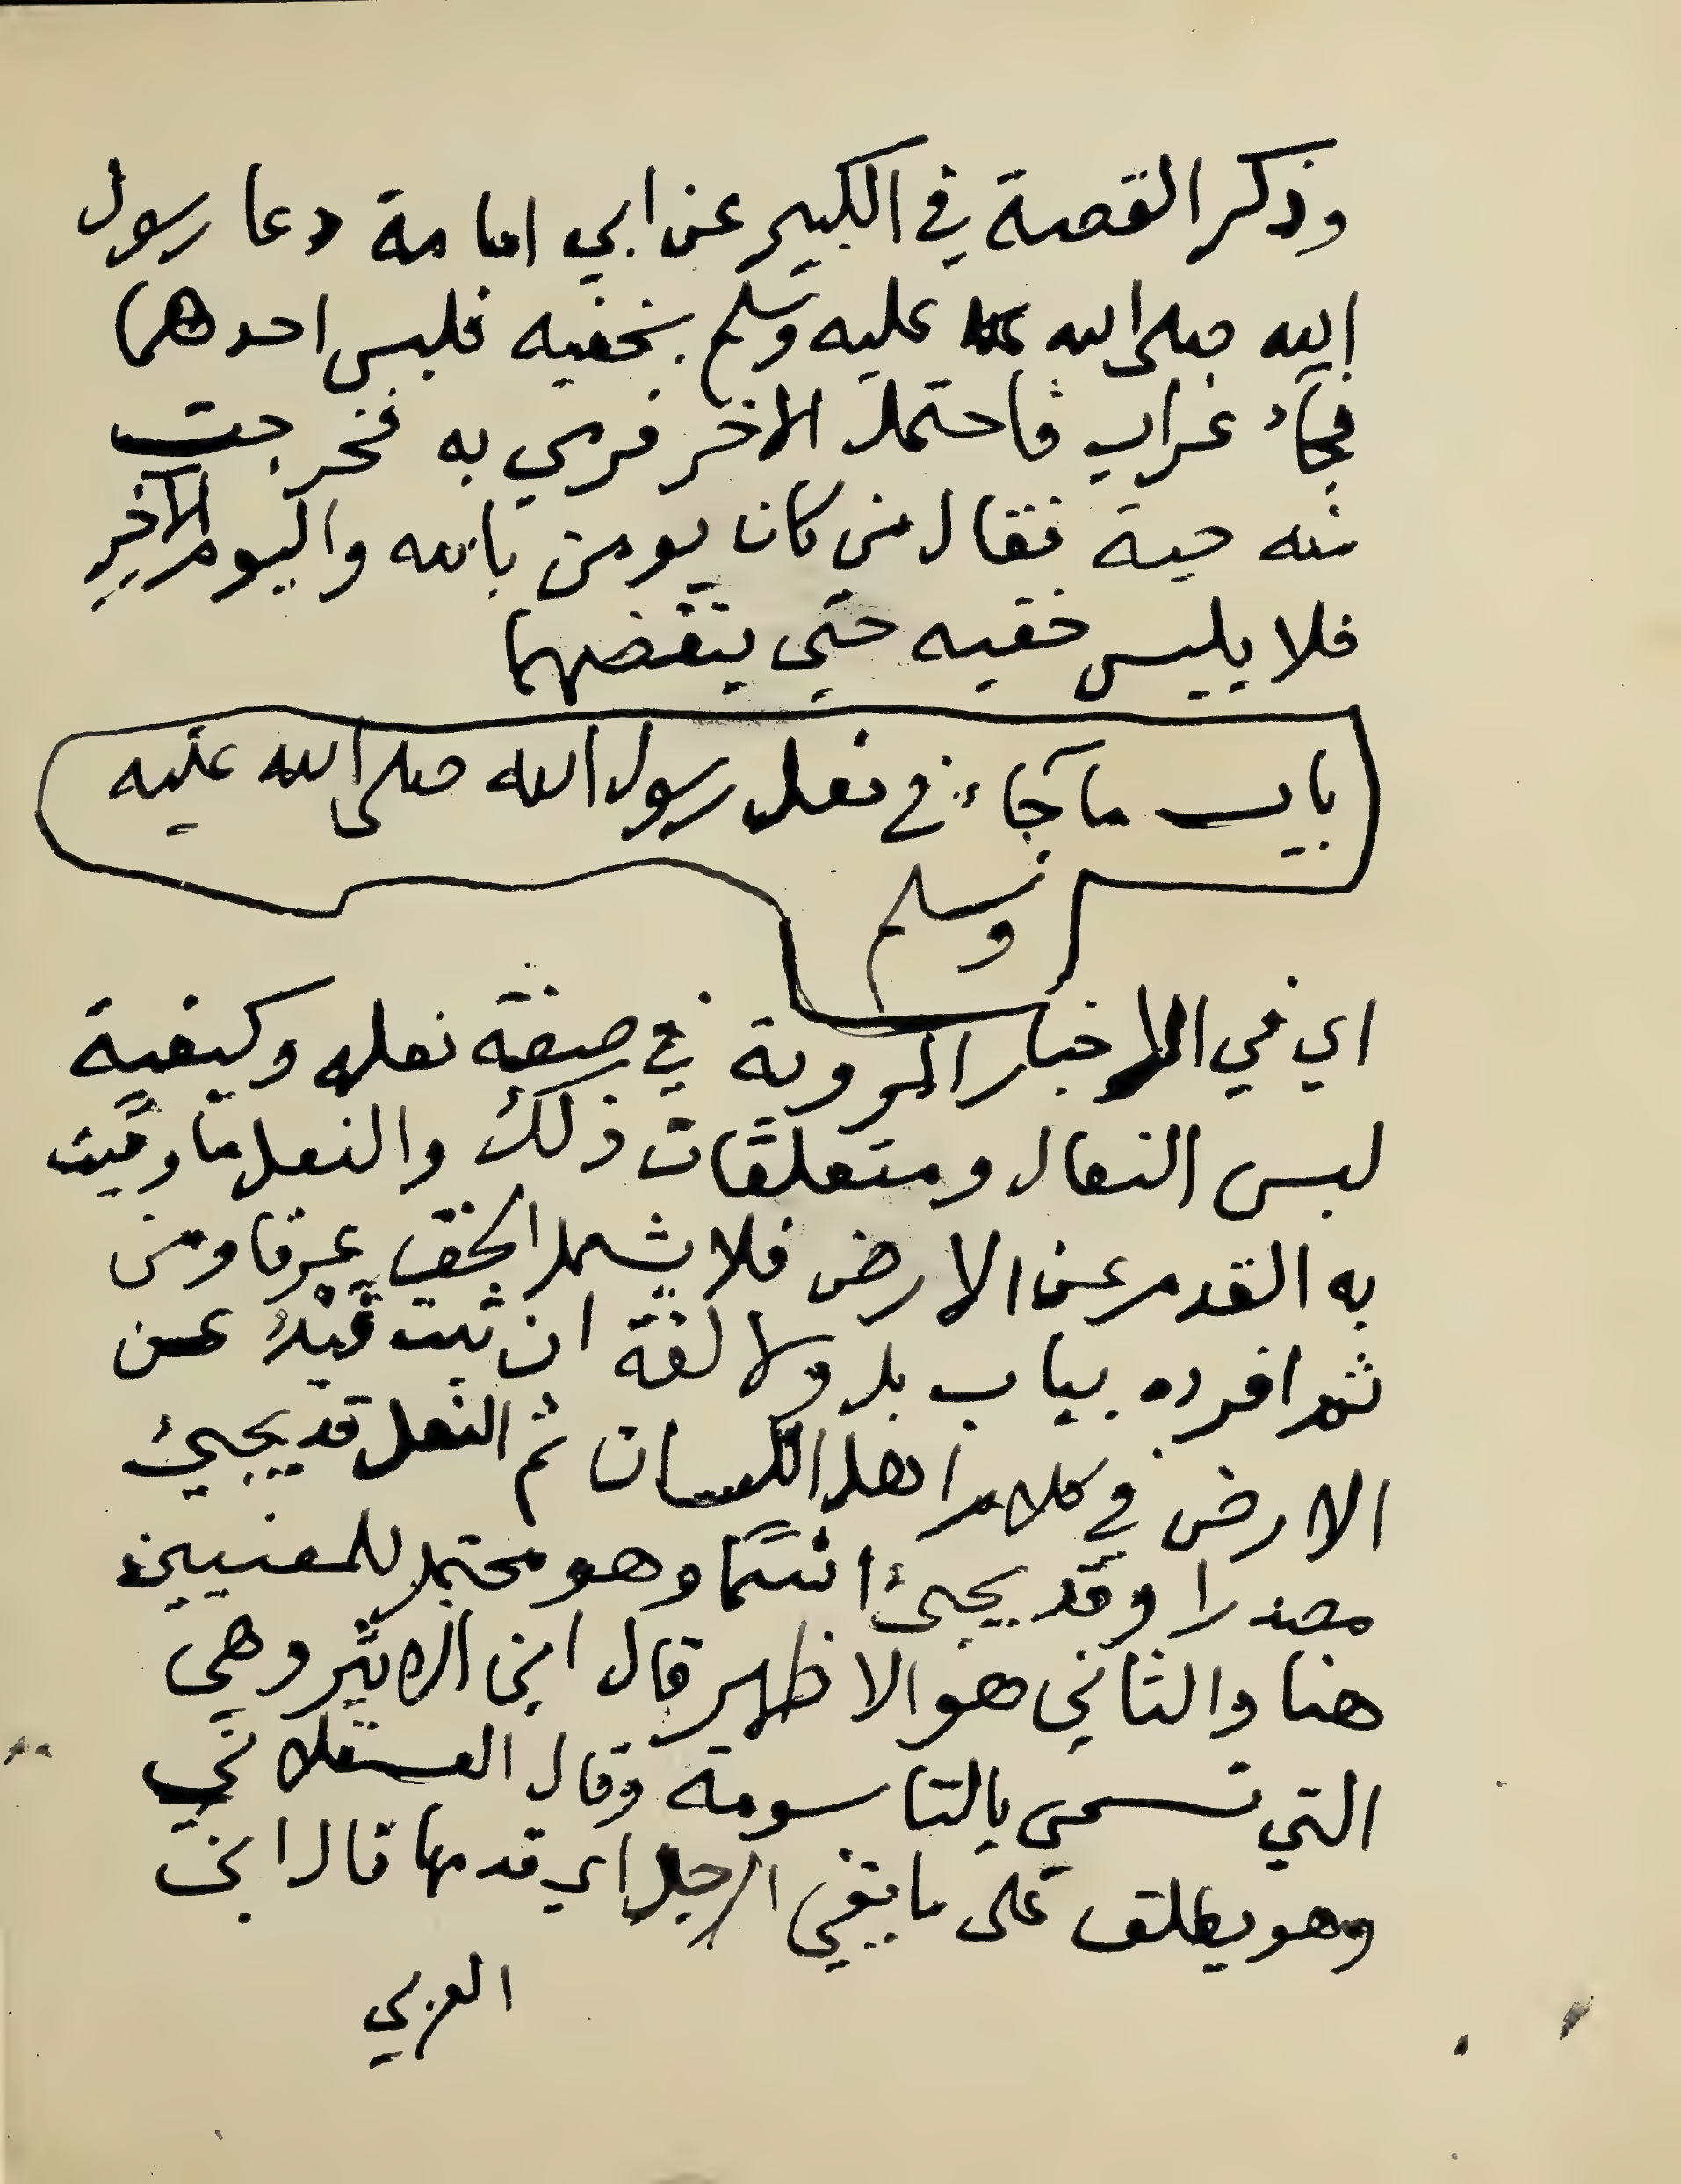 وذكر القصة في الكبير عن ابي امامة دعا رسول
الله صلى الله عليه وسلم بخفيه فلبس احدهما
فجاء غراب فاحتمل الاخر فرمي به فخرجت
منه حية فقال من كان يومن بالله واليوم الاخر
فلا يلبس خفيه حتي ينفضهما
باب ما جاء في نعل رسول الله صلى الله عليه
وسلم
اي في الاخبار المروية في صفة نعله وكيفية
لبس النعال ومتعلقات ذلك والنعل ما وقيت
به القدم عن الارض فلا يشمل الخف عرفا ومن
ثم افرده بباب بل ولا لغة ان ثبت قيد عن
الارض في كلام اهل اللسان ثم النعل قد يجيئ
مصدرا وقد يجيئ اسما وهو محتمل للمعنيين
هنا والثاني هو الاظهر قال ابن الاثير وهي
التي تسمى بالتاسومة وقال العسقلاني
وهو يطلق على ما يقي الرجل اي قدمها قال ابن
العربي